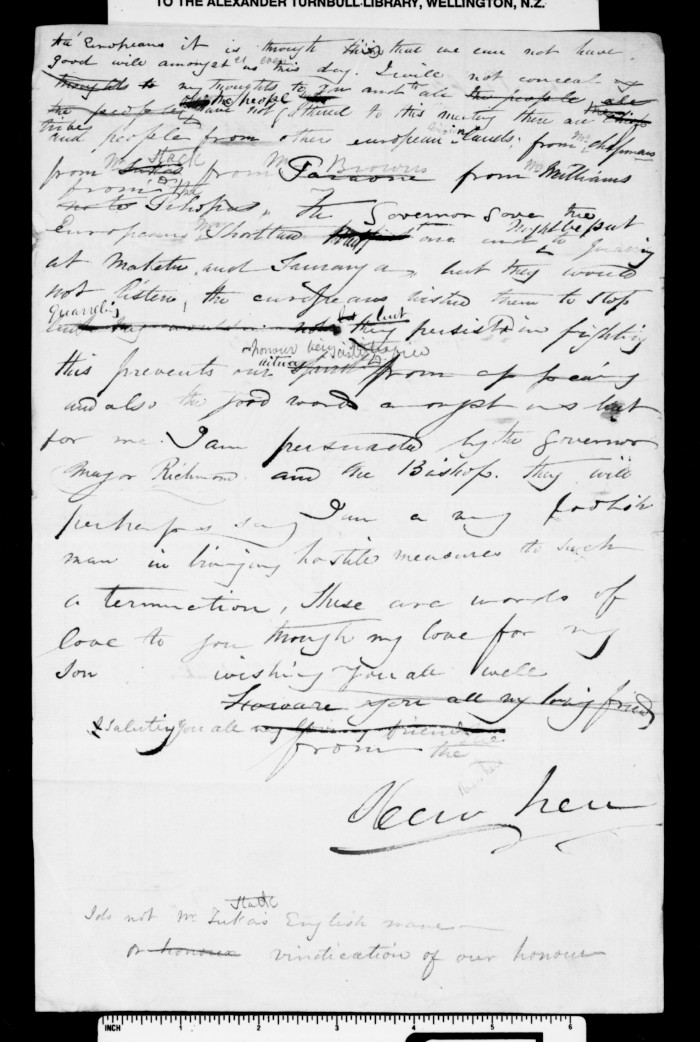 TO THE ALEXANDER TURNBULL LIBRARY, WELLINGTON, N.Z.
the Europeans it is through this that we can not have
good will amongst us at even this day. I will not conceal my
thoughts to my thoughts to you and to all the people all
the people the people have not gathered to this meeting there are these
tribes and people from other european lands; from Mr Chapmans
from Mr Stack from Mr Browns Paraone from Mr Williams
from the Pihopas, The Governor gave the
Europeans Mr Shortland one might be put to quarreling
at Maketu and Tauranga, but they would
not listen, the europeans wished them to stop
quarreling but they persisted in fighting
or honour being
this prevents our from appearing
and also the good words amongst us but
for me. I am persuaded by the Governor
Major Richmond and the Bishop. they will
perhaps say I am a very foolish
man in bringing hostile measures to such
a termination, These are words of
love to you though my love for my
son wishing you all well
you all my loving friends
I saluting you all my loving friends
from the
Heu heu
Stack
I do not Mr Tukas English name
or honour vindication of our honour
INCH 1 2 3 4 5 6